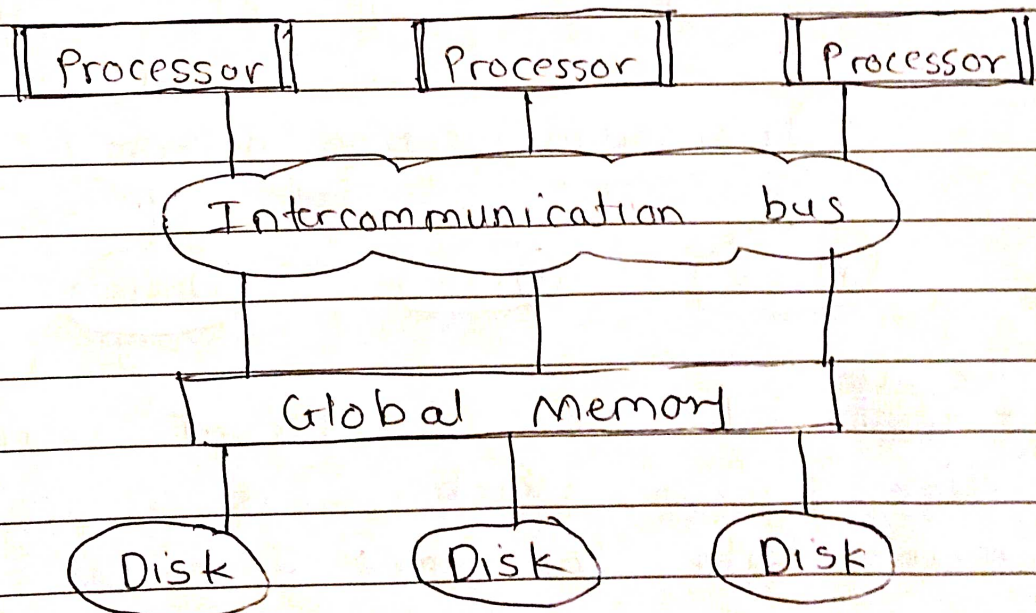 Processor Processor Processor
Intercommunication bus
Global Memory
Disk Disk Disk